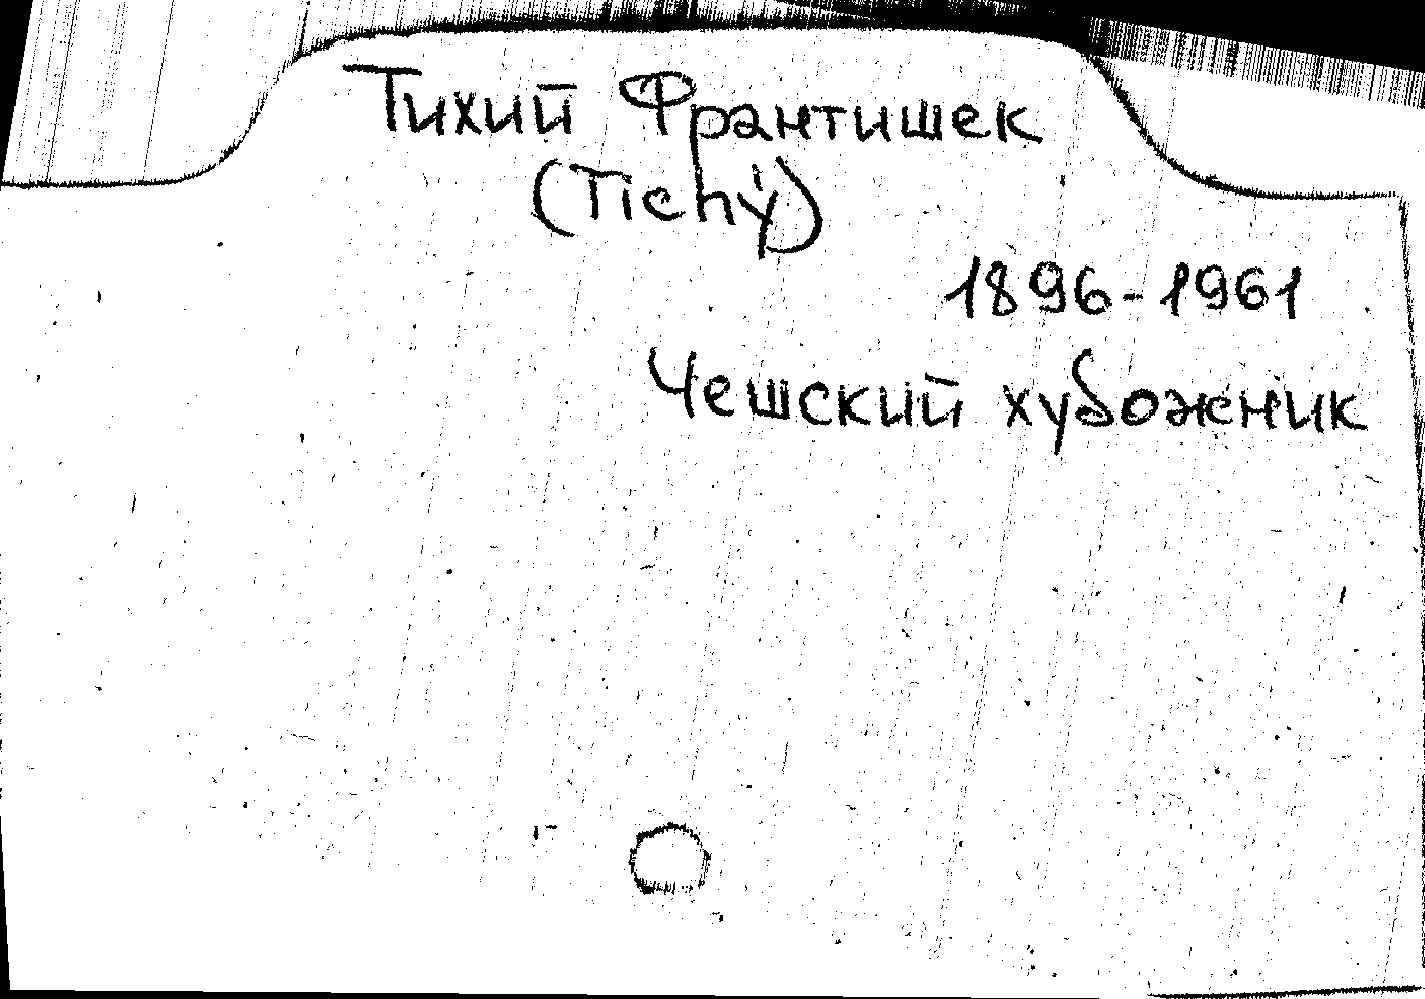 Тихий Франтишек
(Tichý)
1896-1961
Чешский художник